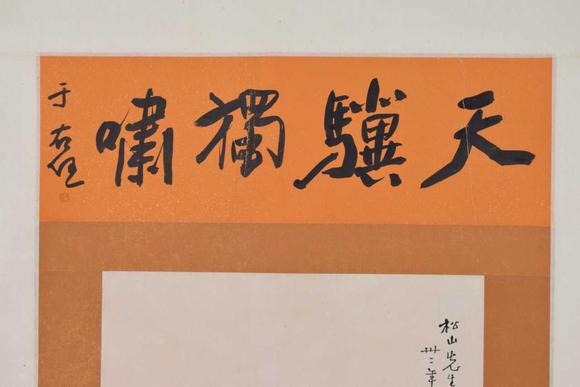 天驥獨嘯
于右任
松山先生
卅二年